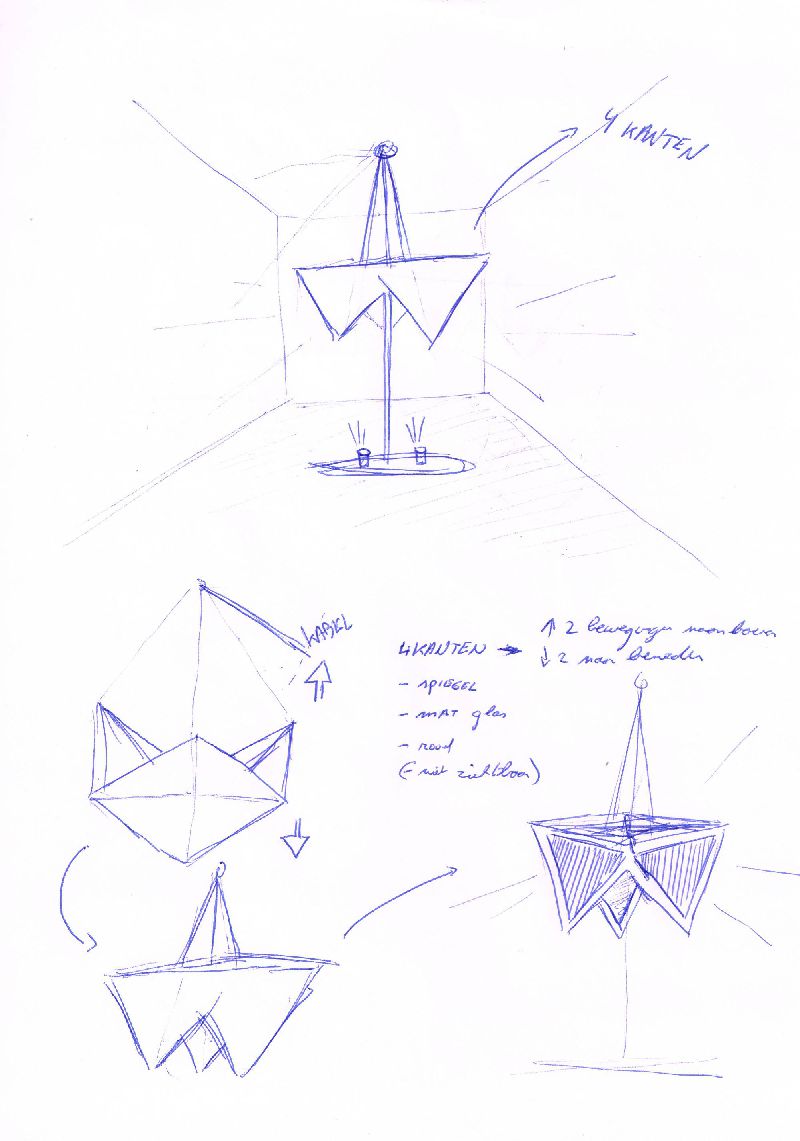 4 KANTEN
KABEL
4 KANTEN → ↑ 2 bewegingen naar boven
↓ 2 naar beneden
- SPIEGEL
- MAT glas
- rood
(- niet zichtbaar)